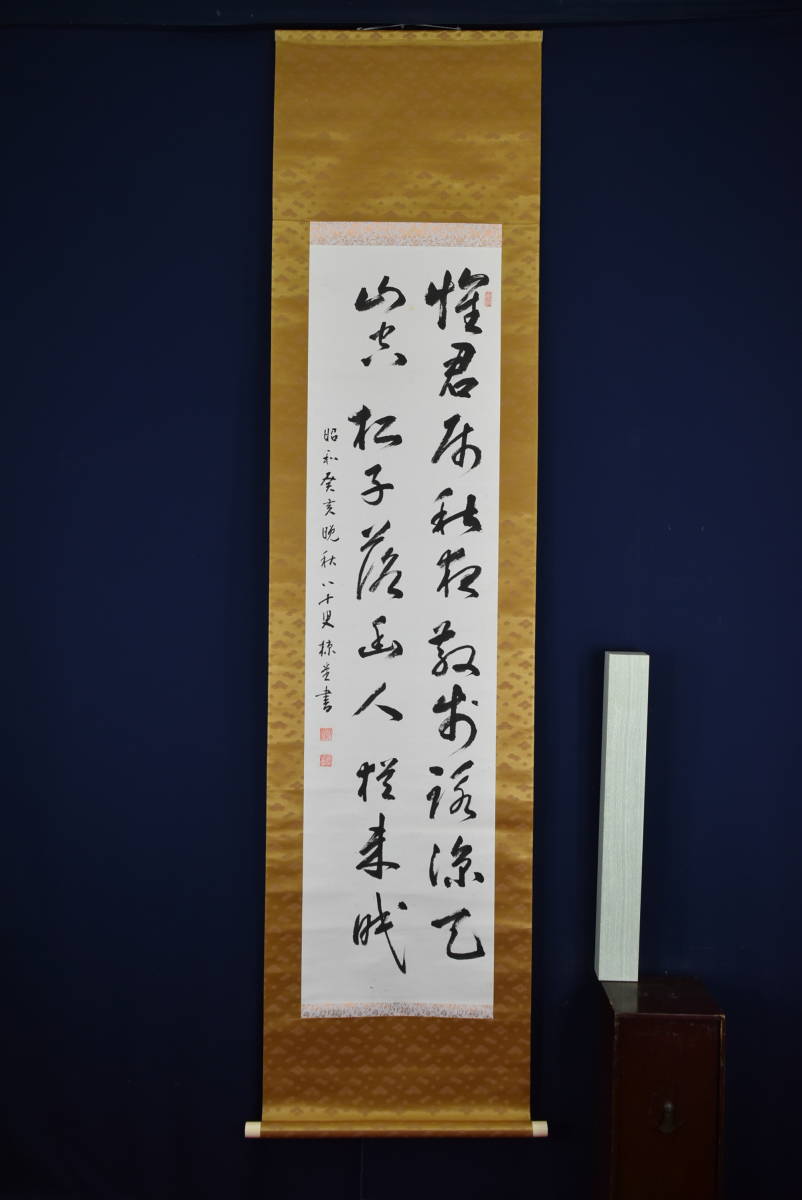 懐君属秋夜散歩詠涼天
山空松子落幽人応未眠
昭和癸亥晩秋八十叟書